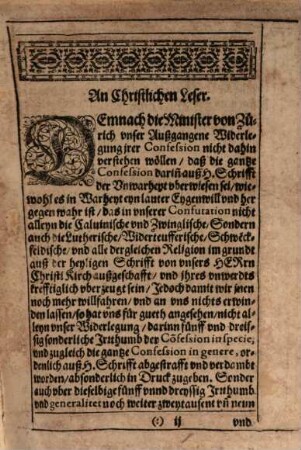 An Christlichen Leser.
DEmnach die Minister von Zü-
rich vnser Außgangene Widerle-
gung jrer Confession nicht dahin
verstehen wöllen / daß die gantze
Confession dariñ auß H. Schrifft
der Vnwarheyt vberwiesen sei / wie-
wohl es in Warheyt eyn lauter Eygenwill vnd her
gegen wahr ist / das in vnserer Confutation nicht
alleyn die Caluinische vnd Zwinglische / Sondern
auch die Lutherische / Widerteufferische / Schweck-
feldische / vnd alle dergleichen Religion im grundt
auß der heyligen Schrifft von vnsers HERrn
Christi Kirch außgeschafft / vnd ihres vnwerdts
krefftiglich vberzeugt sein / Jedoch damit wir jenen
noch mehr willfahren / vnd an vns nichts erwin-
den lassen / so hat vns für gueth angesehen / nicht al-
leyn vnser Widerlegung / darinn fünff vnd dreis-
sig sonderliche Irrthumb der Cõfession in specie,
vnd zugleich die gantze Confession in genere, or-
denlich auß H. Schrifft abgestrafft vnd verdambt
worden / absonderlich in Druck zugeben. Sonder
auch vber dieselbige fünff vnnd dreyssig Irrthumb
vnd generalitet noch weiter zweytausent vñ neun
(:) ij vnd